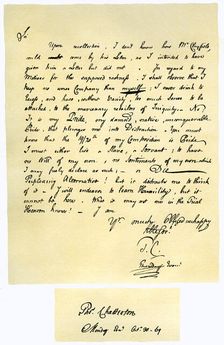 Sir
Upon recollection, I don't know how Mr Clayfield
could come by his Letter, as I intended to have
given him a Letter but did not. In regard to my
Motives for the supposed rashness, I shall observe that I
keep no worse Company than myself; I never drink to
Excess, and have, without Vanity, too much Sense to be
attached to the mercenary retailers of Iniquity. No!
It is my Pride, my damn'd, native, unconquerable
Pride, that plunges me into Distraction. You must
know that 19/20th of my Composition is Pride.
I must either live a Slave, a Servant; to have
no Will of my own, no Sentiments of my own which
I may freely declare as such; or Die.
Perplexing Alternative! but it distracts me to think
of it. I will endeavor to learn Humility, but it
cannot be here. What it may cost me in the trial
Heaven knows! I am
Yr much Obliged unhappy
T. C.
Thursday Even:
Thos. Chatterton